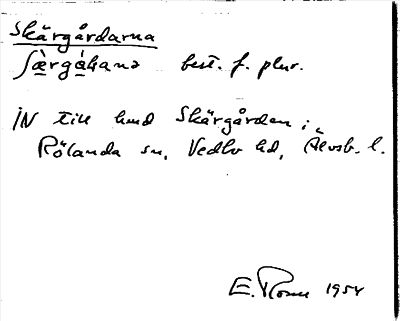 Skärgårdarna
ʃæ̀rgáṇanə best. f. plur.
IN till hmd Skärgården i
Rölanda sn, Vedbo hd, Älvsb. l.
E. 1954